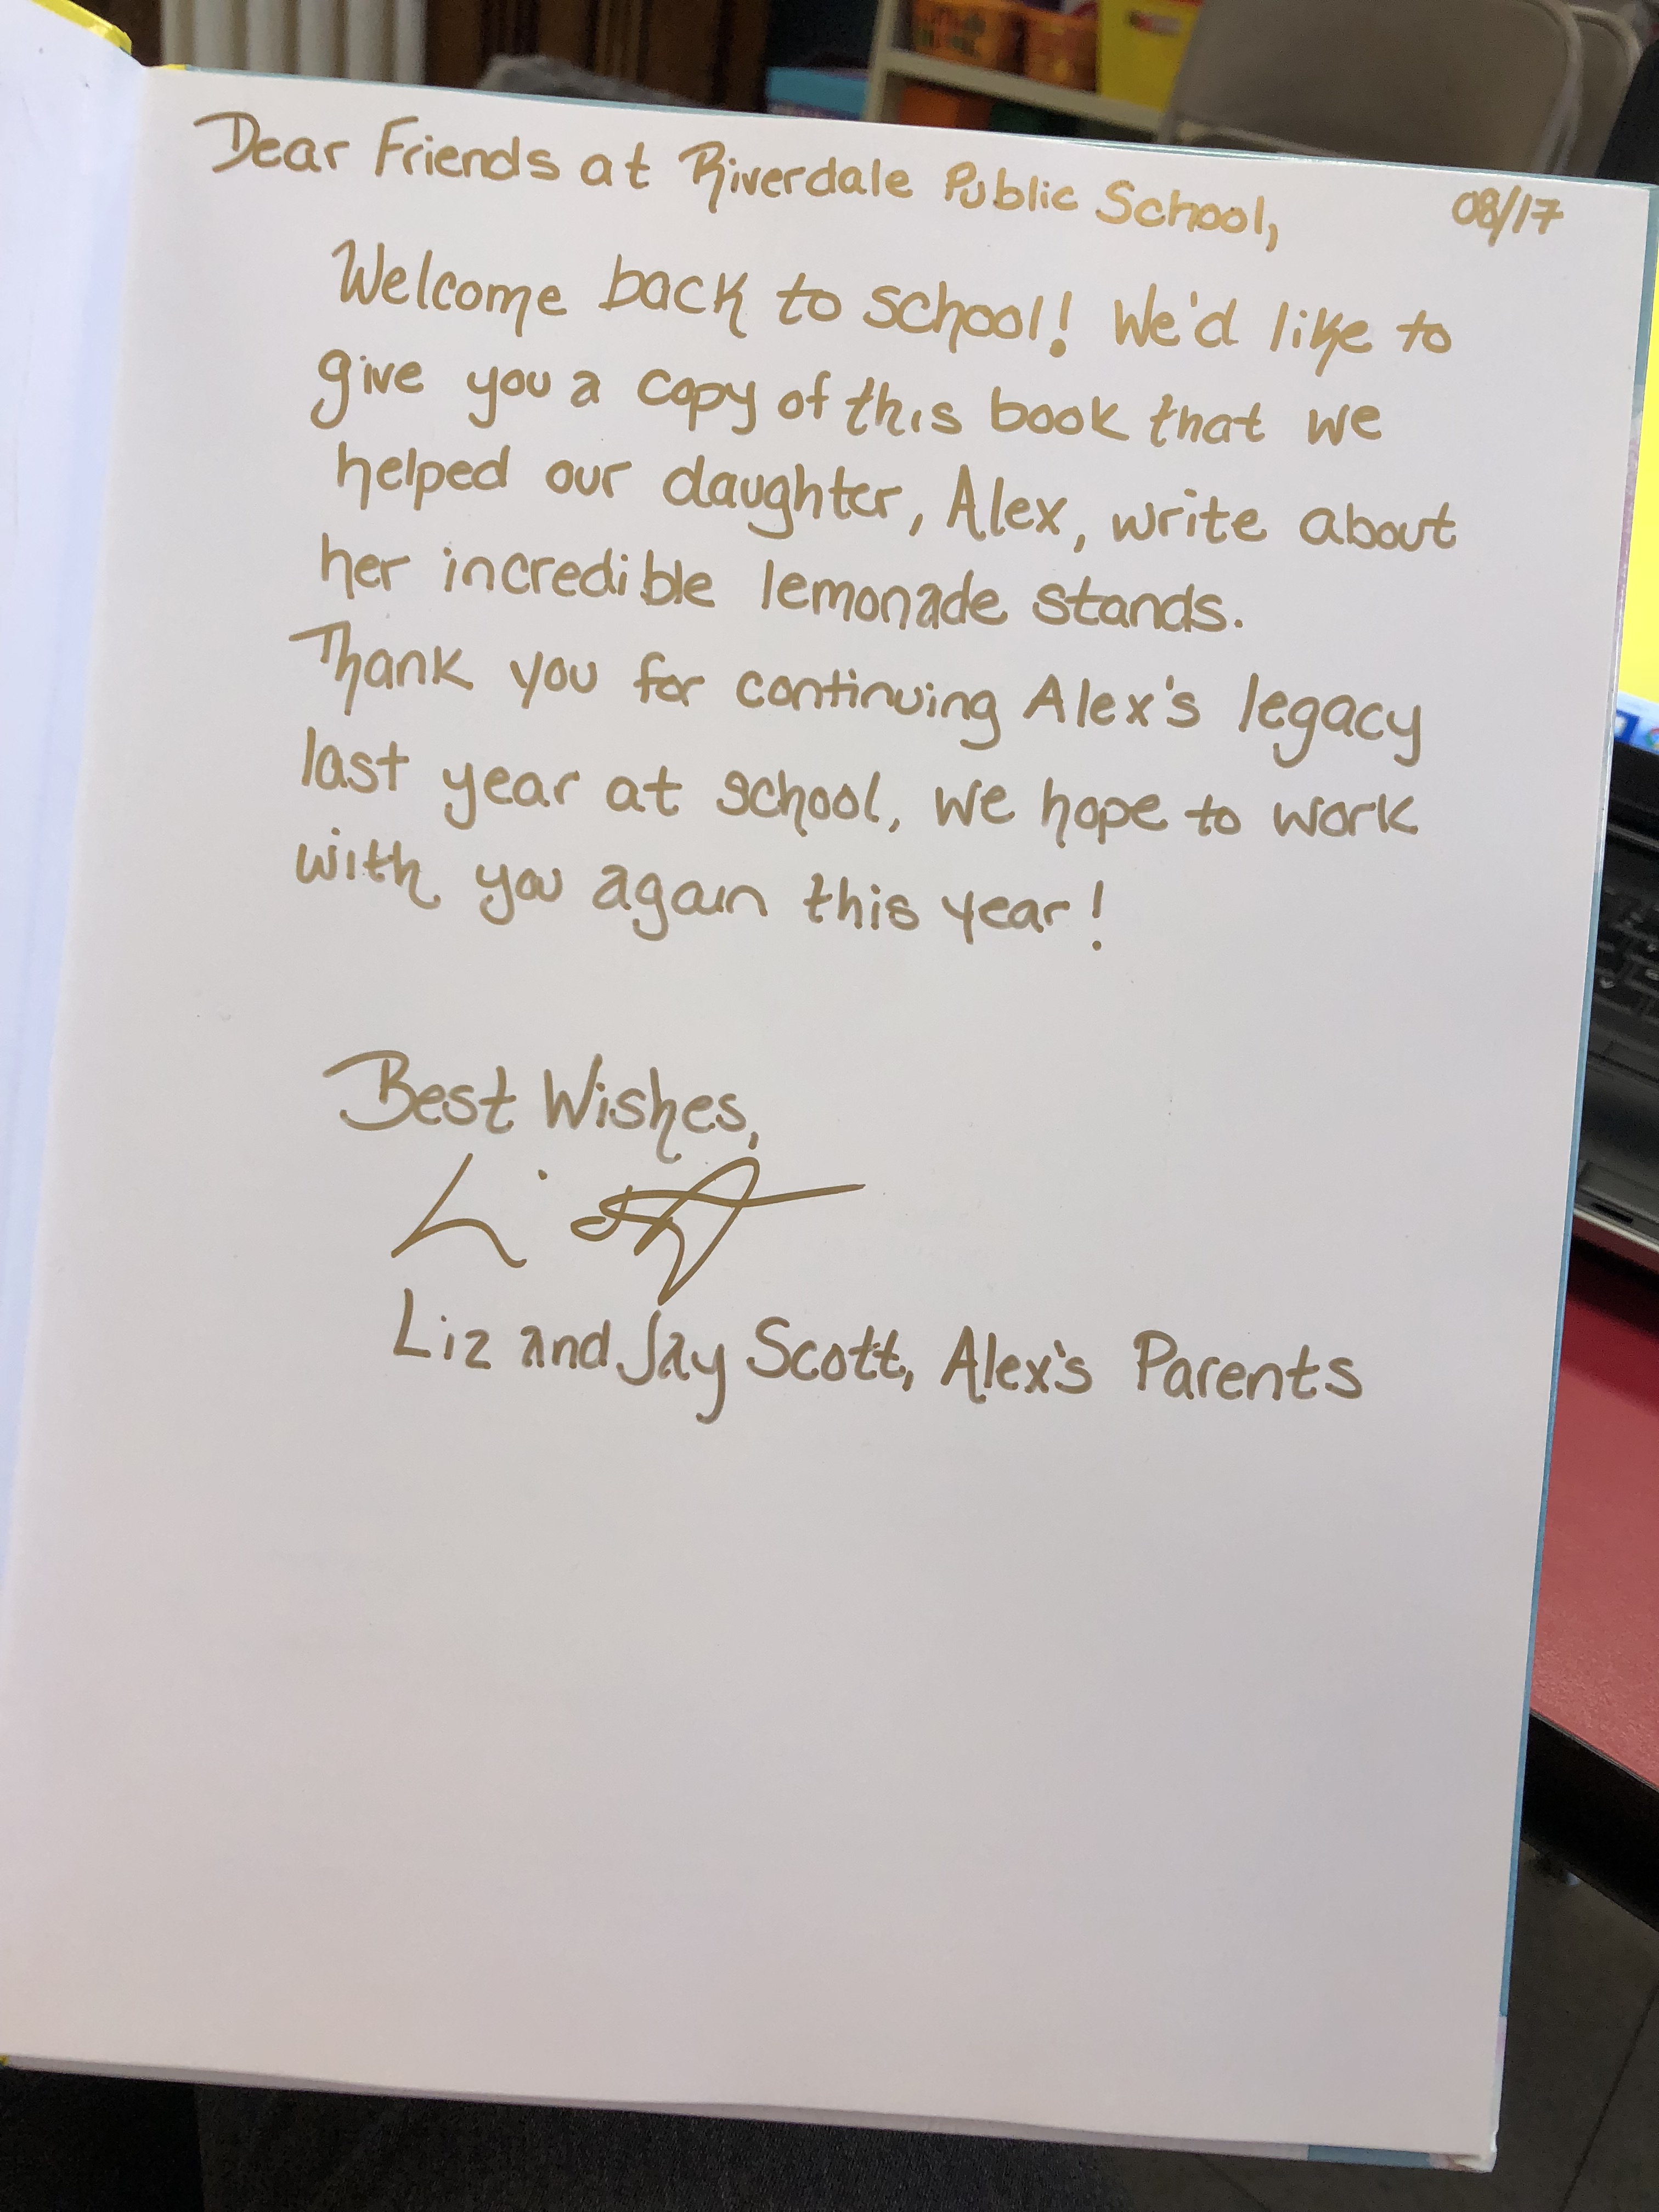 Dear Friends at Riverdale Public School, 08/17
Welcome back to school! We'd like to
give you a copy of this book that we
helped our daughter, Alex, write about
her incredible lemonade stands.
Thank you for continuing Alex's legacy
last year at school, we hope to work
with you again this year!
Best Wishes,
Liz and Jay Scott, Alex's Parents